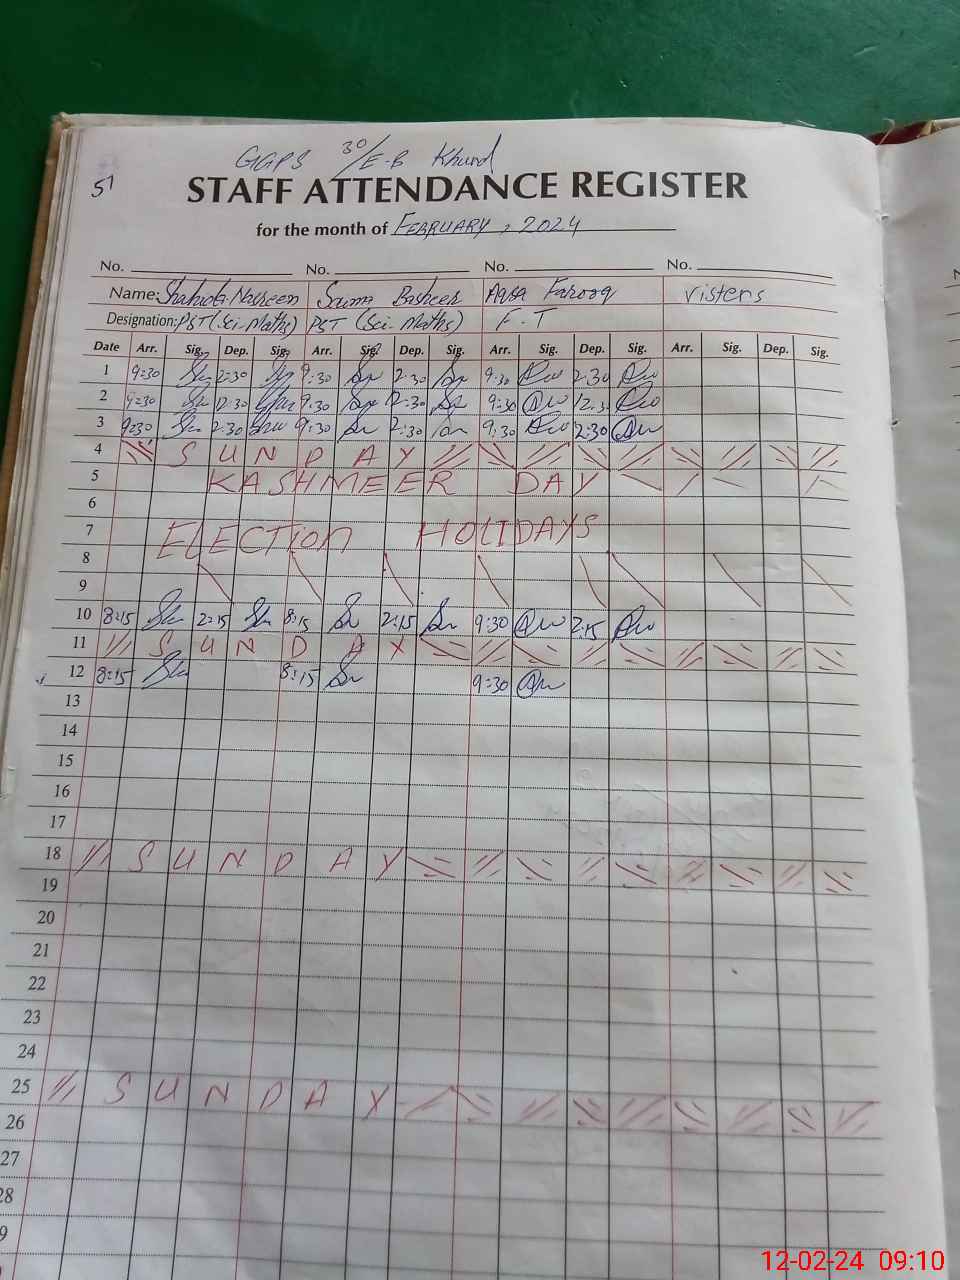 GGPS 30/E-B Khurd
51
STAFF ATTENDANCE REGISTER
for the month of FEBRUARY, 2024
No. No. No. No.
Name: Shahida Nasreen Saima Basheer Aqsa Farooq visters
Designation: PST (Sci-Maths) PST (Sci-Maths) F.T
Date Arr. Sig. Dep. Sig. Arr. Sig. Dep. Sig. Arr. Sig. Dep. Sig. Arr. Sig. Dep. Sig.
1 9:30 2:30 9:30 2:30 9:30 2:30
2 9:30 12:30 9:30 12:30 9:30 12:3
3 9:30 2:30 9:30 2:30 9:30 2:30
4 SUNDAY
5 KASHMEER DAY
6
7 ELECTION HOLIDAYS
8
9
10 8:15 2:15 8:15 2:15 9:30 2:15
11 SUNDAY
12 8:15 8:15 9:30
13
14
15
16
17
18 SUNDAY
19
20
21
22
23
24
25 SUNDAY
26
27
28
9
12-02-24 09:10